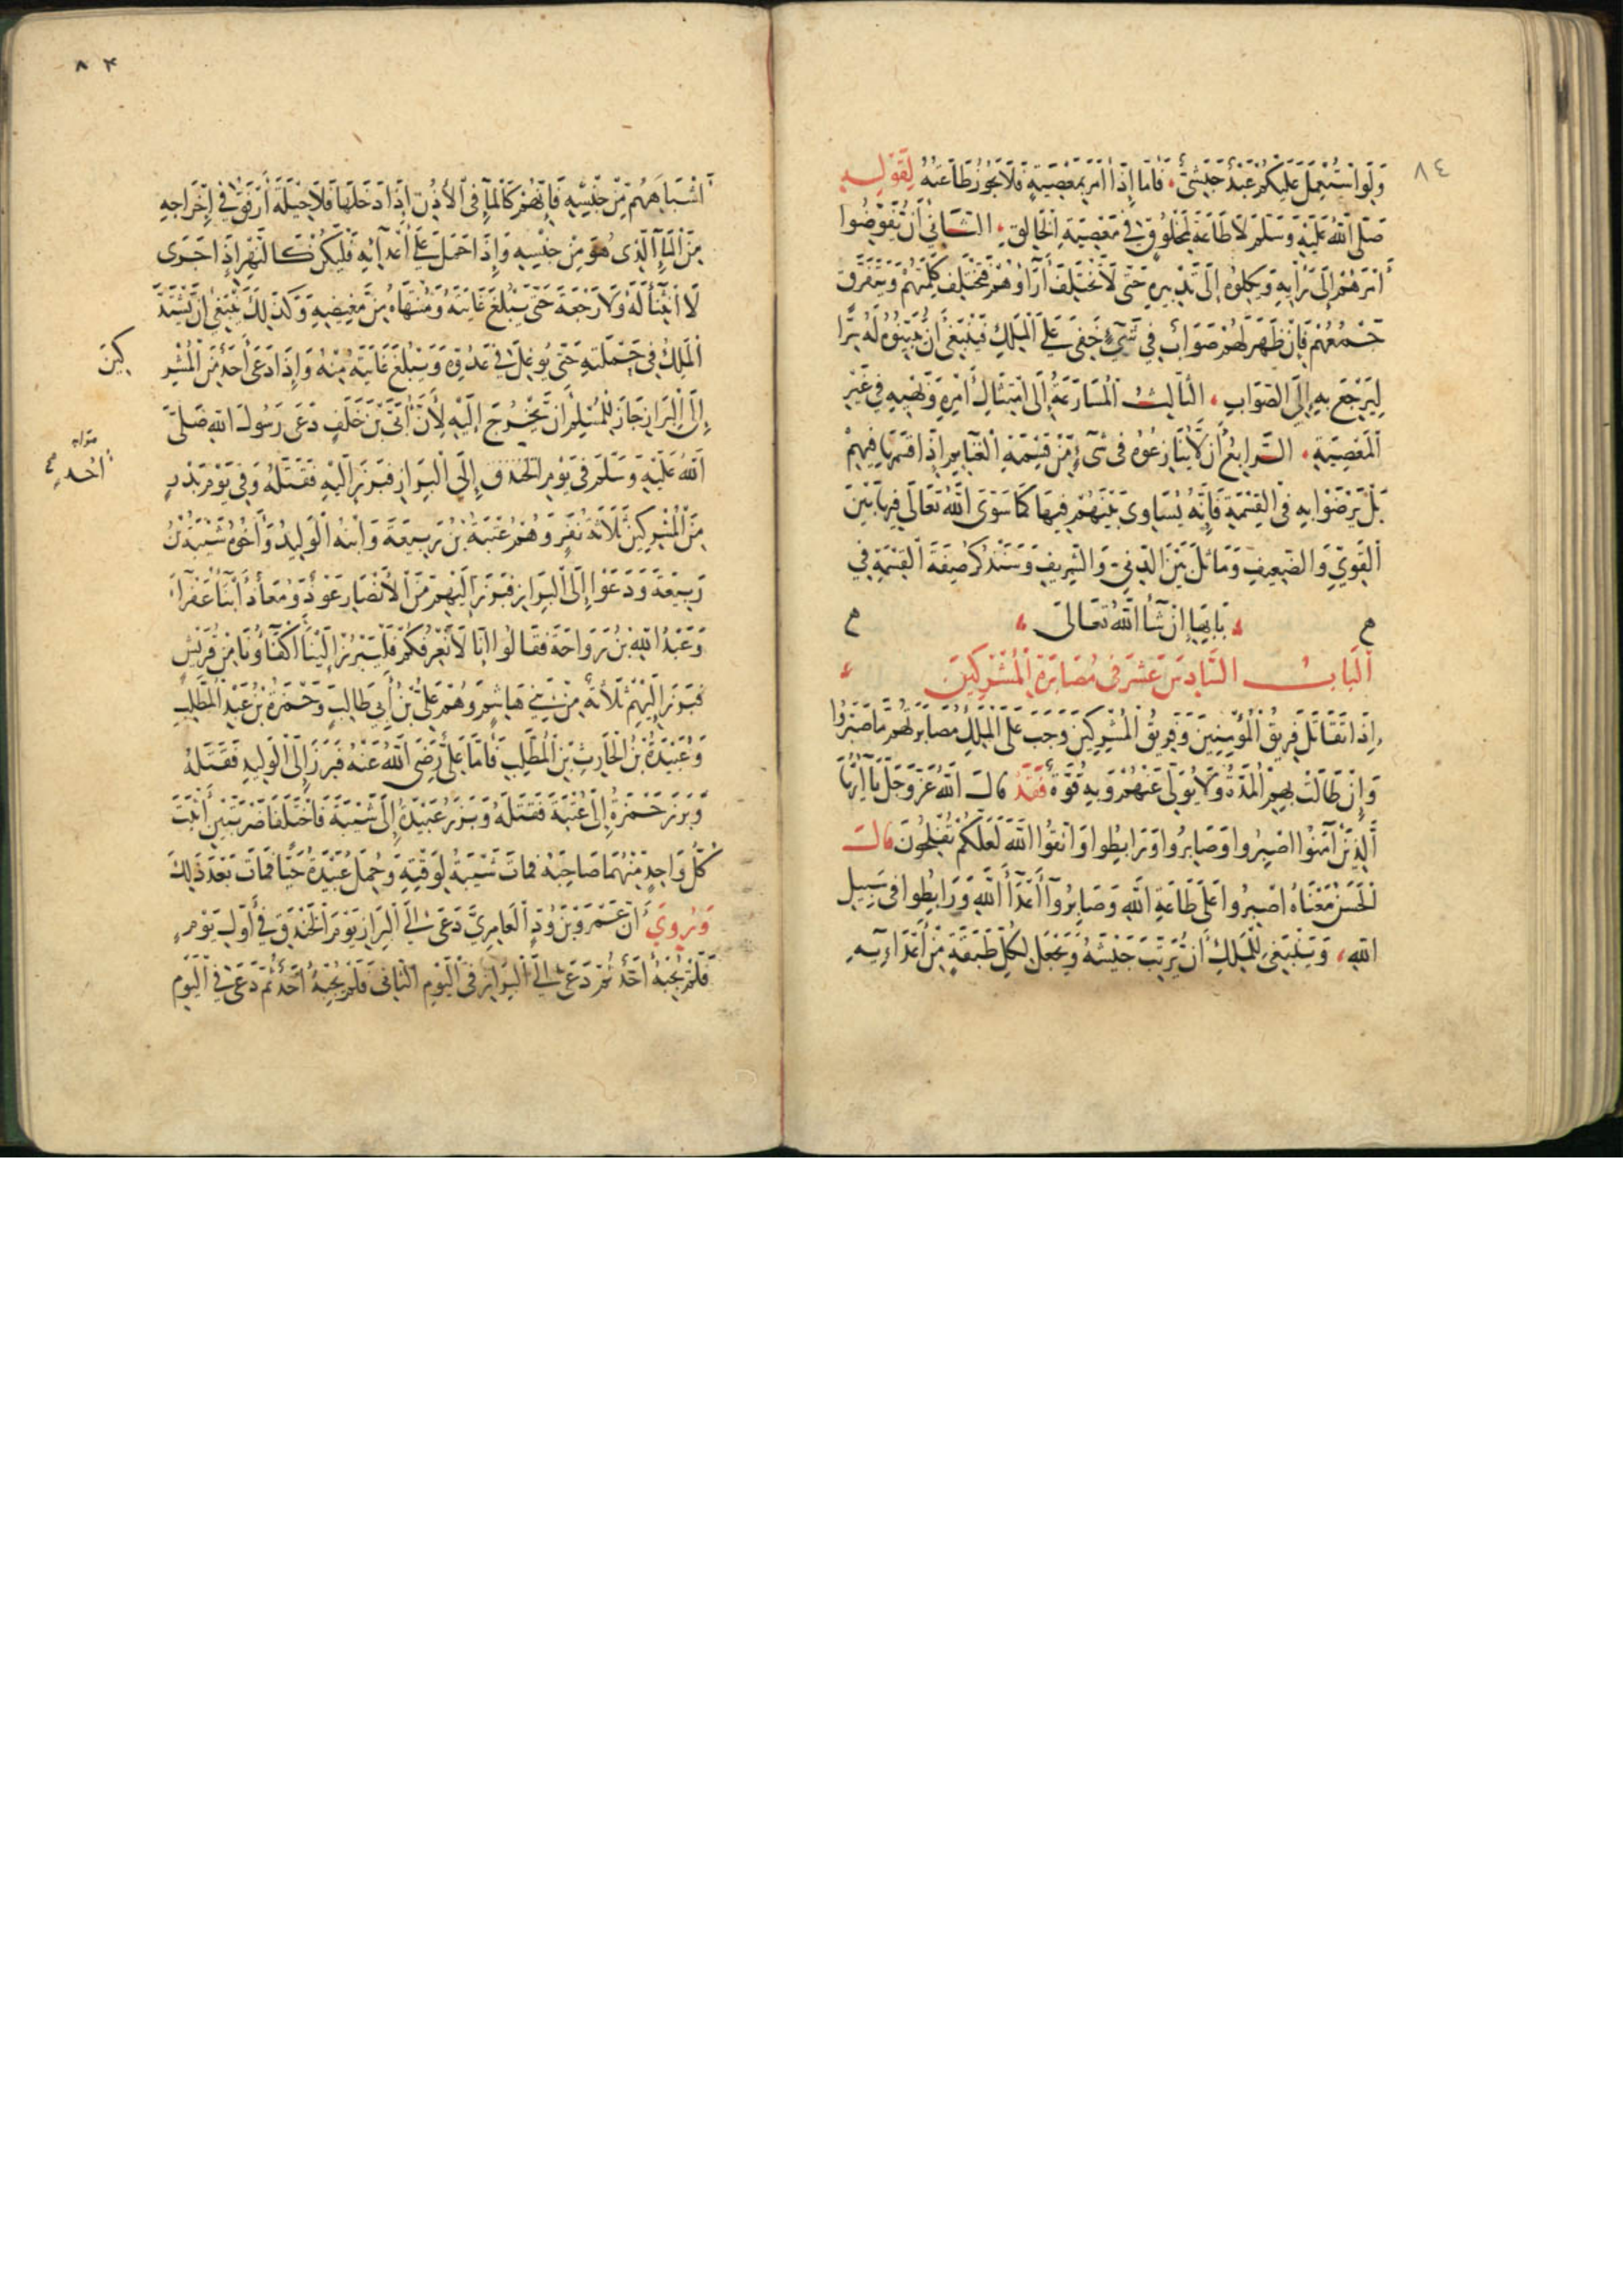 ٨٤
وَلَوِ اسْتُعْمِلَ عَلَيْكُمْ عَبْدٌ حَبَشِيٌّ فَأَمَّا إِذَا أَمَرَ بِمَعْصِيَةٍ فَلَا يَجُوزُ طَاعَتُهُ لِقَوْلِهِ
صَلَّى اللَّهُ عَلَيْهِ وَسَلَّمَ لَا طَاعَةَ لِمَخْلُوقٍ فِي مَعْصِيَةِ الْخَالِقِ الثَّانِي أَنْ يُفَوِّضُوا
أَمْرَهُمْ إِلَى رَأْيِهِ وَيَكِلُوهُ إِلَى تَدْبِيرِهِ حَتَّى لَا تَخْتَلِفَ آرَاؤُهُمْ فَتَخْتَلِفَ كَلِمَتُهُمْ وَيَتَفَرَّقَ
جَمْعُهُمْ فَإِنْ ظَهَرَ لَهُمْ صَوَابٌ فِي شَيْءٍ خَفِيَ عَلَى الْمَلِكِ فَيَنْبَغِي أَنْ يُبَيِّنُوهُ لَهُ سِرًّا
لِيَرْجِعَ بِهِ إِلَى الصَّوَابِ الثَّالِثُ الْمُسَارَعَةُ إِلَى امْتِثَالِ أَمْرِهِ وَنَهْيِهِ فِي غَيْرِ
الْمَعْصِيَةِ الرَّابِعُ أَنْ لَا يُنَازِعُوهُ فِي شَيْءٍ مِنْ قِسْمَةِ الْغَنَايِمِ إِذَا قَسَمَهَا فِيهِمْ
بَلْ يَرْضَوْا بِهِ فِي الْقِسْمَةِ فَإِنَّهُ يُسَاوِي بَيْنَهُمْ فِيهَا كَمَا سَوَّى اللَّهُ تَعَالَى فِيهَا بَيْنَ
الْقَوِيِّ وَالضَّعِيفِ وَمَاثَلَ بَيْنَ الدَّنِيِّ وَالشَّرِيفِ وَسَنَذْكُرُ صِفَةَ الْقِسْمَةِ فِي
بَابِهَا إِنْ شَآءَ اللَّهُ تَعَالَى
الْبَابُ السَّادِسَ عَشَرَ فِي مُصَابَرَةِ الْمُشْرِكِينَ
إِذَا تَقَاتَلَ فَرِيقُ الْمُؤْمِنِينَ وَفَرِيقُ الْمُشْرِكِينَ وَجَبَ عَلَى الْمَلِكِ مُصَابَرَتُهُمْ مَا صَبَرُوا
وَإِنْ طَالَتْ بِهِمُ الْمُدَّةُ وَلَا يُوَلِّي عَنْهُمْ وَبِهِ قُوَّةٌ فَقَدْ قَالَ اللَّهُ عَزَّ وَجَلَّ يَا أَيُّهَا
الَّذِينَ آمَنُوا اصْبِرُوا وَصَابِرُوا وَرَابِطُوا وَاتَّقُوا اللَّهَ لَعَلَّكُمْ تُفْلِحُونَ قَالَ
الْحَسَنُ مَعْنَاهُ اصْبِرُوا عَلَى طَاعَةِ اللَّهِ وَصَابِرُوا أَعْدَآءَ اللَّهِ وَرَابِطُوا فِي سَبِيلِ
اللَّهِ وَيَنْبَغِي لِلْمَلِكِ أَنْ يُرَتِّبَ جَيْشَهُ وَيَجْعَلَ لِكُلِّ طَبَقَةٍ مِنْ أَعْدَاءِيهِ
٨٤
أَشْبَاهَهُمْ مِنْ جِنْسِهِ فَإِنَّهُمْ كَالْمَآءِ فِي الْأُذُنِ إِذَا دَخَلَهَا فَلَا حِيلَةَ أَرْفَقُ فِي إِخْرَاجِهِ
مِنَ الْمَآءِ الَّذِي هُوَ مِنْ جِنْسِهِ وَإِذَا حَمَلَ عَلَى أَعْدَآئِهِ فَلْيَكُنْ كَالنَّهْرِ إِذَا جَرَى
لَا انْثِنَاءَ لَهُ وَلَا رَجْعَةَ حَتَّى يَبْلُغَ غَايَتَهُ وَمُنْتَهَاهُ مِنْ مَغِيضِهِ وَكَذَلِكَ يَنْبَغِي أَنْ يَشْتَدَّ
الْمَلِكُ فِي حَمْلَتِهِ حَتَّى يُوغِلَ فِي عَدُوِّهِ وَيَبْلُغَ غَايَتَهُ مِنْهُ وَإِذَا دَعَى أَحَدٌ مِنَ الْمُشْرِ
كِينَ
إِلَى الْبِرَازِ جَازَ لِلْمُسْلِمِ أَنْ يَخْرُجَ إِلَيْهِ لِأَنَّ أُبَيَّ بْنَ خَلَفٍ دَعَى رَسُولَ اللَّهِ صَلَّى
اللَّهُ عَلَيْهِ وَسَلَّمَ فِي يَوْمِ الْخَنْدَقِ إِلَى الْبِرَازِ فَبَرَزَ إِلَيْهِ فَقَتَلَهُ وَفِي يَوْمِ بَدْرٍ
صوابه
أُحُدٍ
مِنَ الْمُشْرِكِينَ ثَلَاثَةُ نَفَرٍ وَهُمْ عُتْبَةُ بْنُ رَبِيعَةَ وَابْنُهُ الْوَلِيدُ وَأَخُوهُ شَيْبَةُ بْنُ
رَبِيعَةَ وَدَعَوْا إِلَى الْبِرَازِ فَبَرَزَ إِلَيْهِمْ مِنَ الْأَنْصَارِ عَوْذٌ وَمُعَاذٌ ابْنَا عَفْرَآءَ
وَعَبْدُ اللَّهِ بْنُ رَوَاحَةَ فَقَالُوا إِنَّا لَا نَعْرِفُكُمْ فَلْيَبْرُزْ إِلَيْنَا أَكْفَآؤُنَا مِنْ قُرَيْشٍ
فَبَرَزَ إِلَيْهِمْ ثَلَاثَةٌ مِنْ بَنِي هَاشِمٍ وَهُمْ عَلِيُّ بْنُ أَبِي طَالِبٍ وَحَمْزَةُ بْنُ عَبْدِ الْمُطَّلِبِ
وَعُبَيْدَةُ بْنُ الْحَارِثِ بْنِ الْمُطَّلِبِ فَأَمَّا عَلِيٌّ رَضِيَ اللَّهُ عَنْهُ فَبَرَزَ إِلَى الْوَلِيدِ فَقَتَلَهُ
وَبَرَزَ حَمْزَةُ إِلَى عُتْبَةَ فَقَتَلَهُ وَبَرَزَ عُبَيْدَةُ إِلَى شَيْبَةَ فَاخْتَلَفَا ضَرْبَتَيْنِ أَثْبَتَ
كُلُّ وَاحِدٍ مِنْهُمَا صَاحِبَهُ فَمَاتَ شَيْبَةُ لِوَقْتِهِ وَحُمِلَ عُبَيْدَةُ حَيًّا فَمَاتَ بَعْدَ ذَلِكَ
وَيُرْوَى أَنَّ عَمْرَو بْنَ وُدٍّ الْعَامِرِيَّ دَعَى إِلَى الْبِرَازِ يَوْمَ الْخَنْدَقِ فِي أَوَّلِ يَوْمٍ
فَلَمْ يُجِبْهُ أَحَدٌ ثُمَّ دَعَى إِلَى الْبِرَازِ فِي الْيَوْمِ الثَّانِي فَلَمْ يُجِبْهُ أَحَدٌ ثُمَّ دَعَى فِي الْيَوْمِ